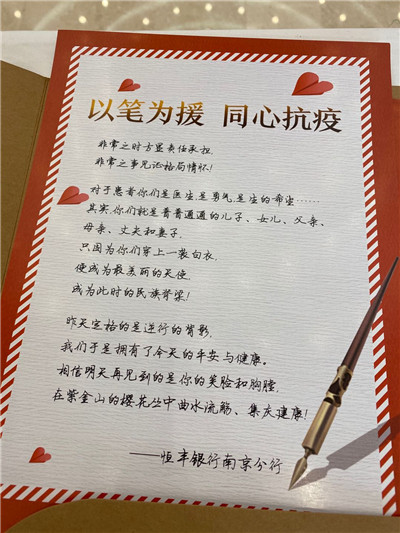 以笔为援 同心抗疫
非常之时方显责任承担,
非常之事见证格局情怀!
对于患者你们是医生是勇气是生的希望……
其实,你们就是普普通通的儿子、女儿、父亲、
母亲、丈夫和妻子.
只因为你们穿上一袭白衣,
便成为最美丽的天使,
成为此时的民族脊梁!
昨天定格的是逆行的背影,
我们于是拥有了今天的平安与健康。
相信明天再见到的是你的笑脸和胸膛
在紫金山的樱花丛中曲水流觞、集庆建康!
——恒丰银行南京分行